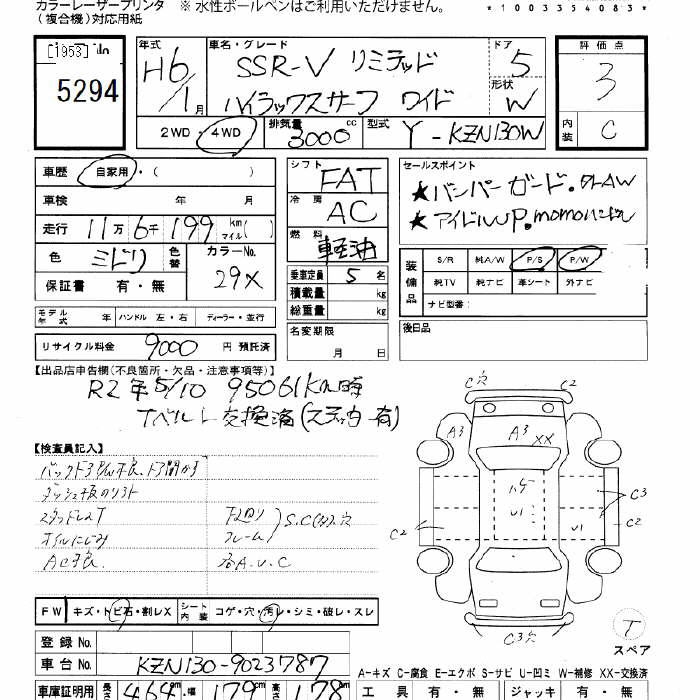 カラーレーザープリンタ ※ 水性ボールペンはご利用いただけません。
(複合機)対応用紙 *1003354083*
[1953]
5294
年式 車名・グレード ドア 評価点
H6/1月 SSR-V リミテッド 5 3
形状
ハイラックスサーフ ワイド W
2WD・4WD 排気量 3000 cc 型式 Y-KZN130W 内装 C
車歴 自家用・( ) シフト FAT セールスポイント
車検 年 月 冷房 AC ★バンパーガード・
走行 11万6千199 km マイル( ) 燃料 軽油 ★アイドルUP.momo
色 ミドリ 色替 カラーNo. 29X
保証書 有・無
乗車定員 5 名
積載量 kg
総重量 kg
装備品 S/R 純A/W P/S P/W
純TV 純ナビ 革シート 外ナビ
ナビ型番:
モデル年式 年 ハンドル 左・右 ディーラー・並行
名変期限 月 日
後日品
リサイクル料金 9000 円 預託済
【出品店申告欄(不良箇所・欠品・注意事項等)】
R2年5/10 95061km時
Tベルト交換済(ステッカー有)
【検査員記入】
バックドア 不良、ドア開かず
ダッシュ板のリフト
スタッドレスT 下回り
オイルにじみ フレーム S.C 穴
AC不良 各A.U.C
C穴 C2
A3 A3 XX
ハゲ
U1 U1
C2 C3 C2
C3穴
T
スペア
FW キズ・トビ石・割レX シート内装 コゲ・穴・汚レ・シミ・破レ・スレ
登録 No.
車台 No. KZN130-9023787
A―キズ C―腐食 E―エクボ S―サビ U―凹ミ W―補修 XX―交換済
車庫証明用 長さ 464cm・幅 179cm 高さ 178cm 工具 有・無 ジャッキ 有・無